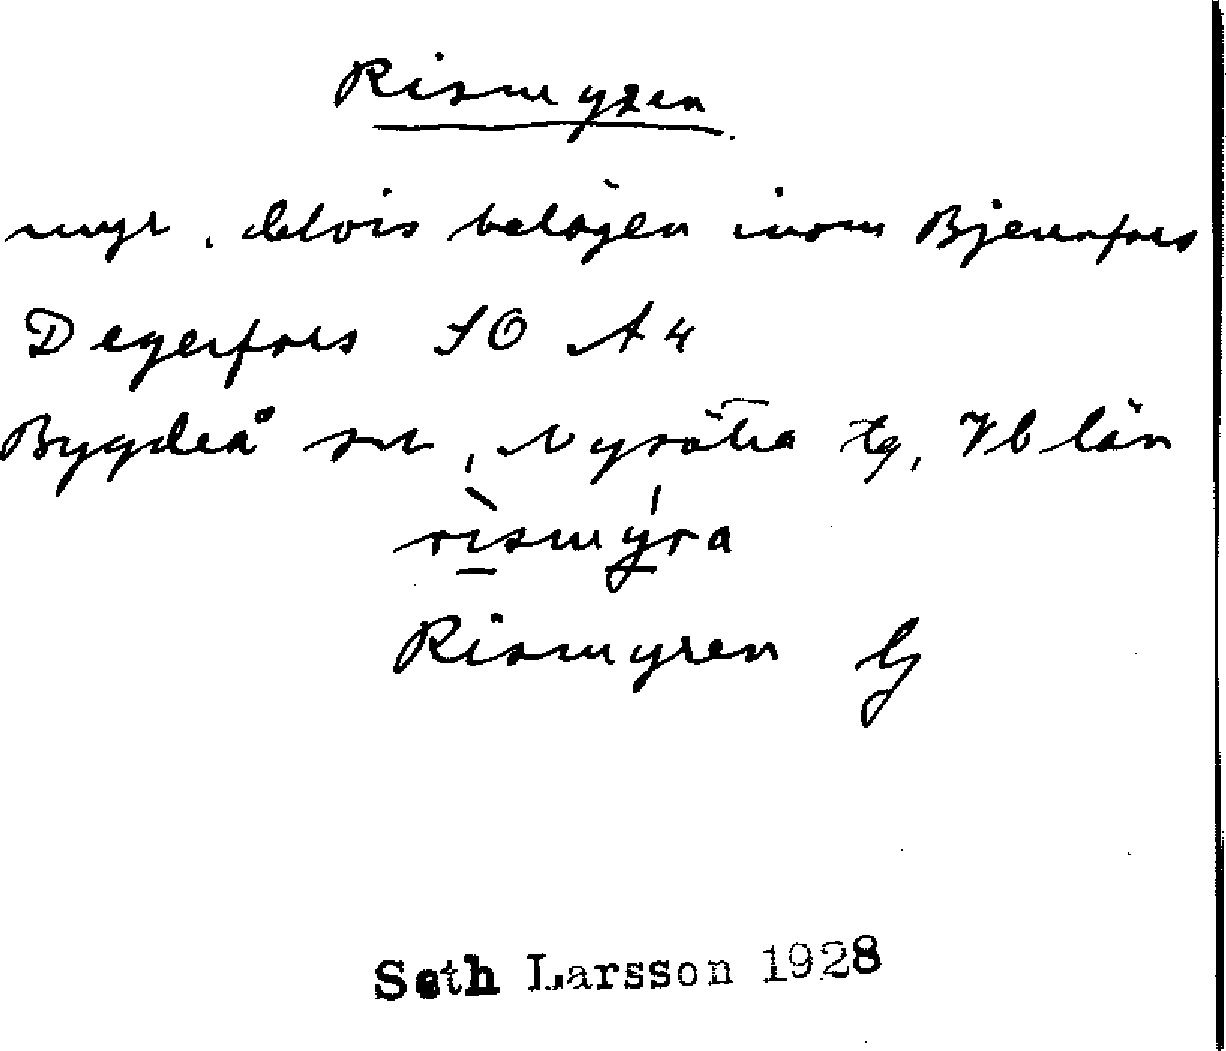 Rismyren
myr, delvis belägen inom Bjennfors
Degerfors SO A4
Bygdeå sn, Nysätra tg, Vb län
rìsmýra
Rismyren G
Seth Larsson 1928